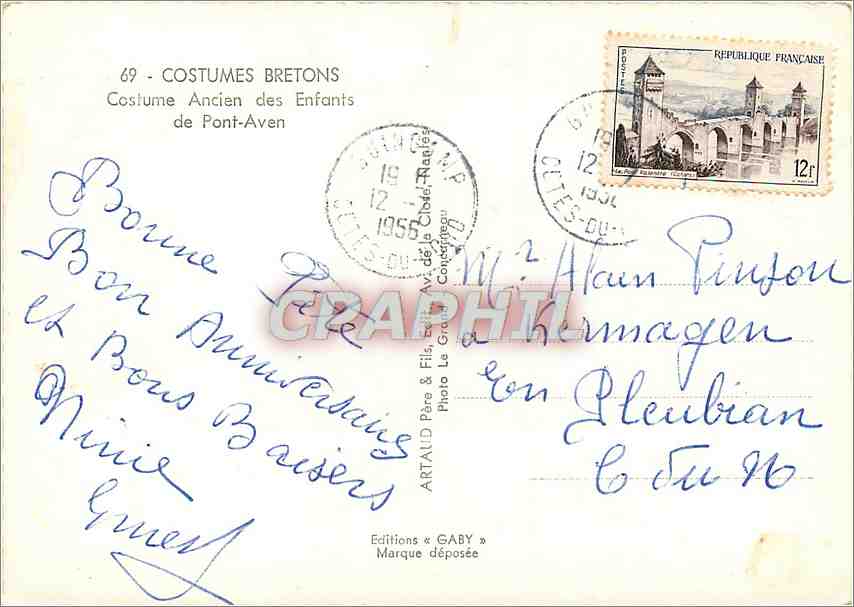 69 - COSTUMES BRETONS
Costume Ancien des Enfants
de Pont-Aven
Bonne Fête
Bon Anniversaire
et Bons Baisers
Ninie
GUINGAMP
19 H
12 -
1956
CÔTES-DU-NORD
ARTAUD Père & Fils, Edit. Av. de la Close, Nantes
Photo Le Grand, Concarneau
Editions « GABY »
Marque déposée
POSTES
REPUBLIQUE FRANÇAISE
Le Pont Valentré (Cahors)
12f
Mr Alain Pinson
a Kermagen
en Pleubian
C du N
CPAPHIL